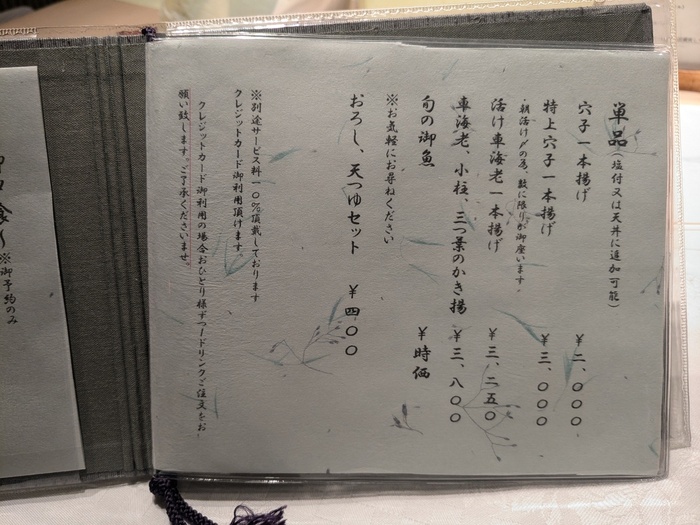 単品(塩付又は天丼に追加可能)
穴子一本揚げ ¥二、〇〇〇
特上穴子一本揚げ ¥三、〇〇〇
朝活け〆の為、数に限りが御座います。
活け車海老一本揚げ ¥三、二五〇
車海老、小柱、三つ葉のかき揚 ¥三、八〇〇
旬の御魚 ¥時価
※お気軽にお尋ねください
おろし、天つゆセット ¥四〇〇
※別途サービス料一〇%頂戴しております
クレジットカード御利用頂けます。
クレジットカード御利用の場合おひとり様ずつードリンクご注文をお
願い致します。ご了承くださいませ。
※御予約のみ